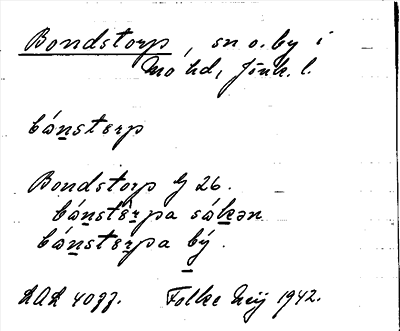 Bondstorp, sn o. by i
Mo hd, Jönk. l.
bánsterp
Bondstorp G 26.
bánstèrpa sákən
bánsterpa bý.
LAL 4077. Folke Neij 1942.